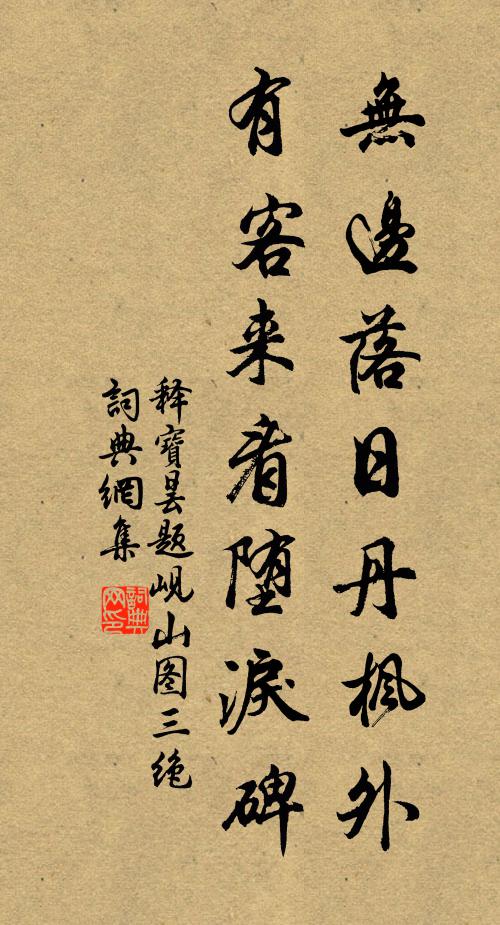 無邊落日丹楓外
有客来看堕淚碑
释寶昙题岘山图三绝
詞典網集
詞典网印